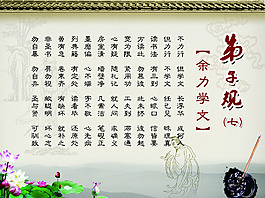 弟子规(七)
【余力学文】
不力行 但学文 长浮华 成何人
但力行 不学文 任己见 昧理真
读书法 有三到 心眼口 信皆要
方读此 勿慕彼 此未终 彼勿起
宽为限 紧用功 工夫到 滞塞通
心有疑 随札记 就人问 求确义
房室清 墙壁净 几案洁 笔砚正
墨磨偏 心不端 字不敬 心先病
列典籍 有定处 读看毕 还原处
虽有急 卷束齐 有缺坏 就补之
非圣书 屏勿视 蔽聪明 坏心志
勿自暴 勿自弃 圣与贤 可驯致